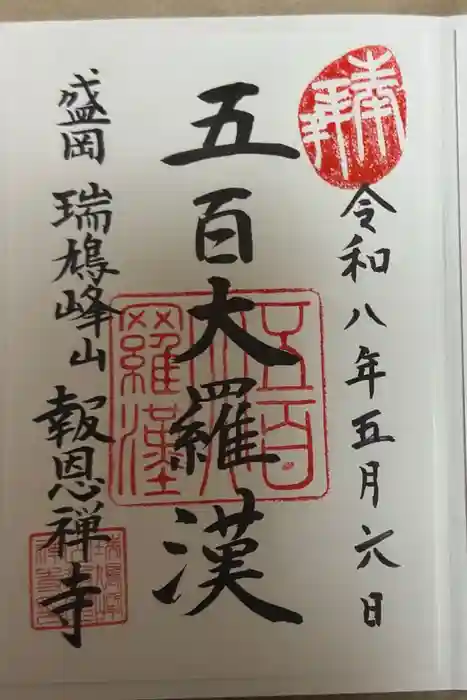 奉拝
令和八年五月六日
五百大羅漢
五百大羅漢
盛岡 瑞鳩峰山 報恩禅寺